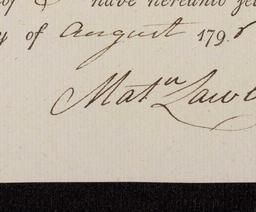 of & have hereunto set
y of August 179
Matw Lawl